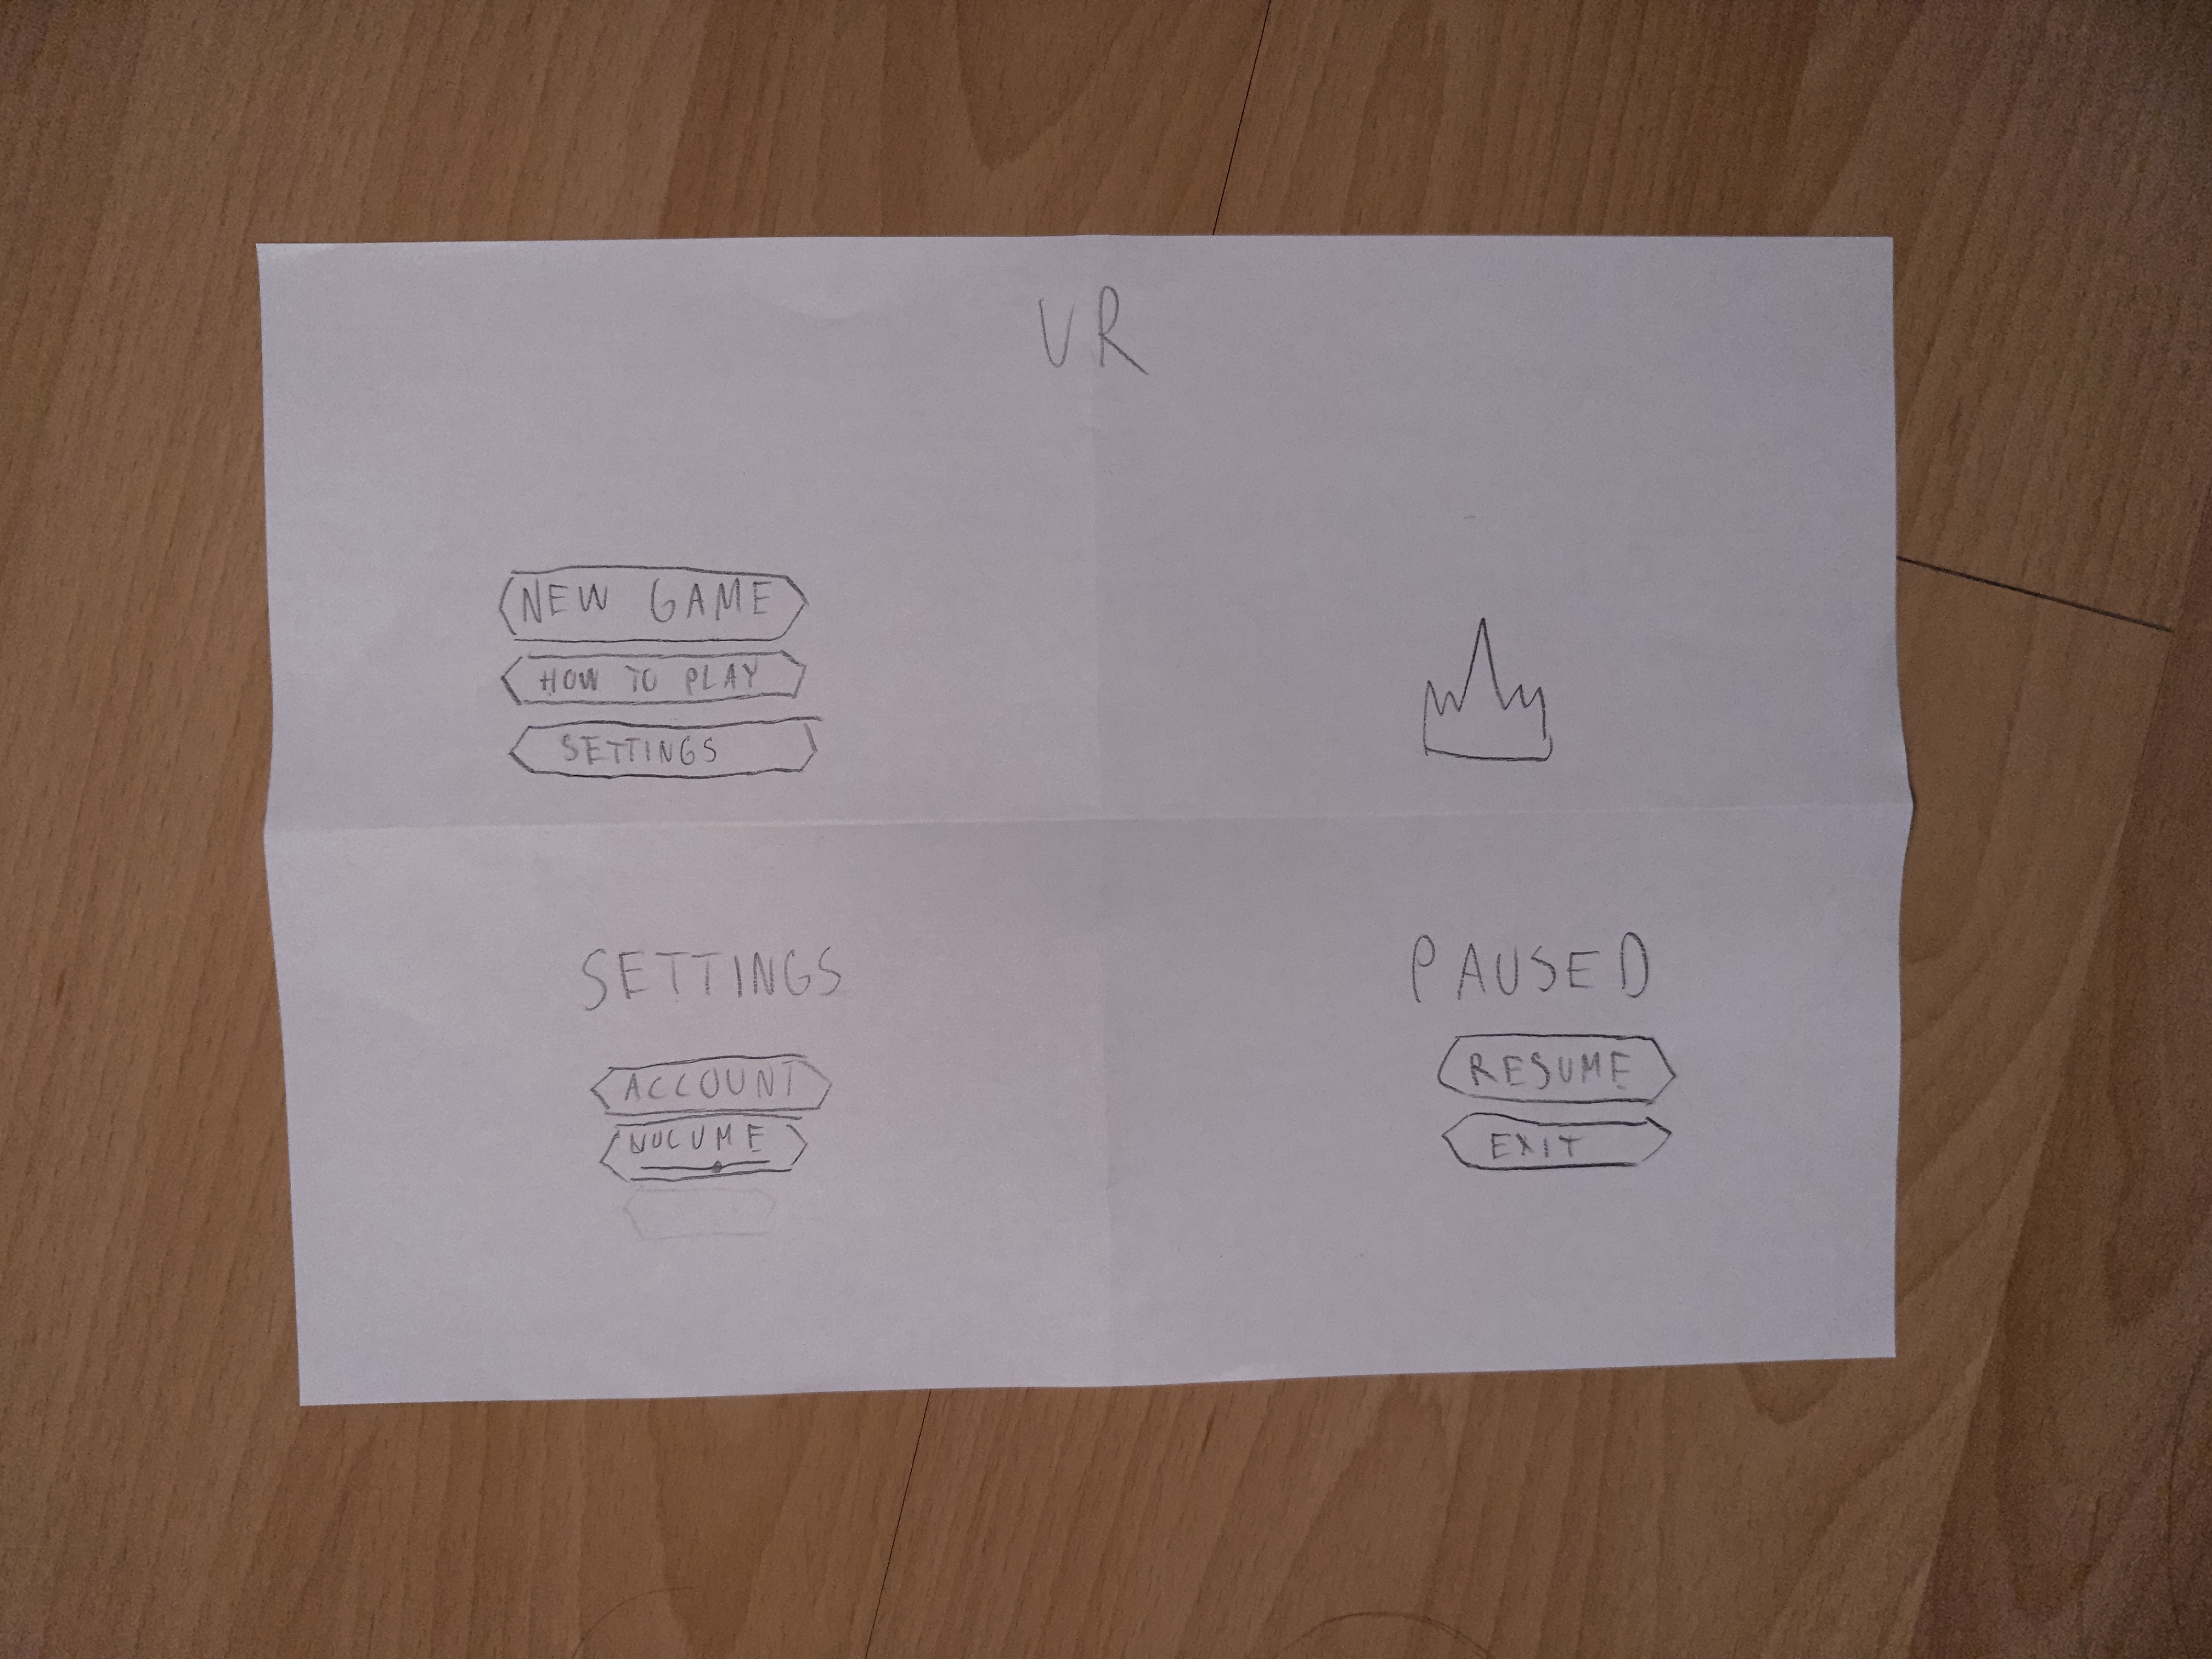 VR
NEW GAME
HOW TO PLAY
SETTINGS
SETTINGS
ACCOUNT
VOLUME
PAUSED
RESUME
EXIT